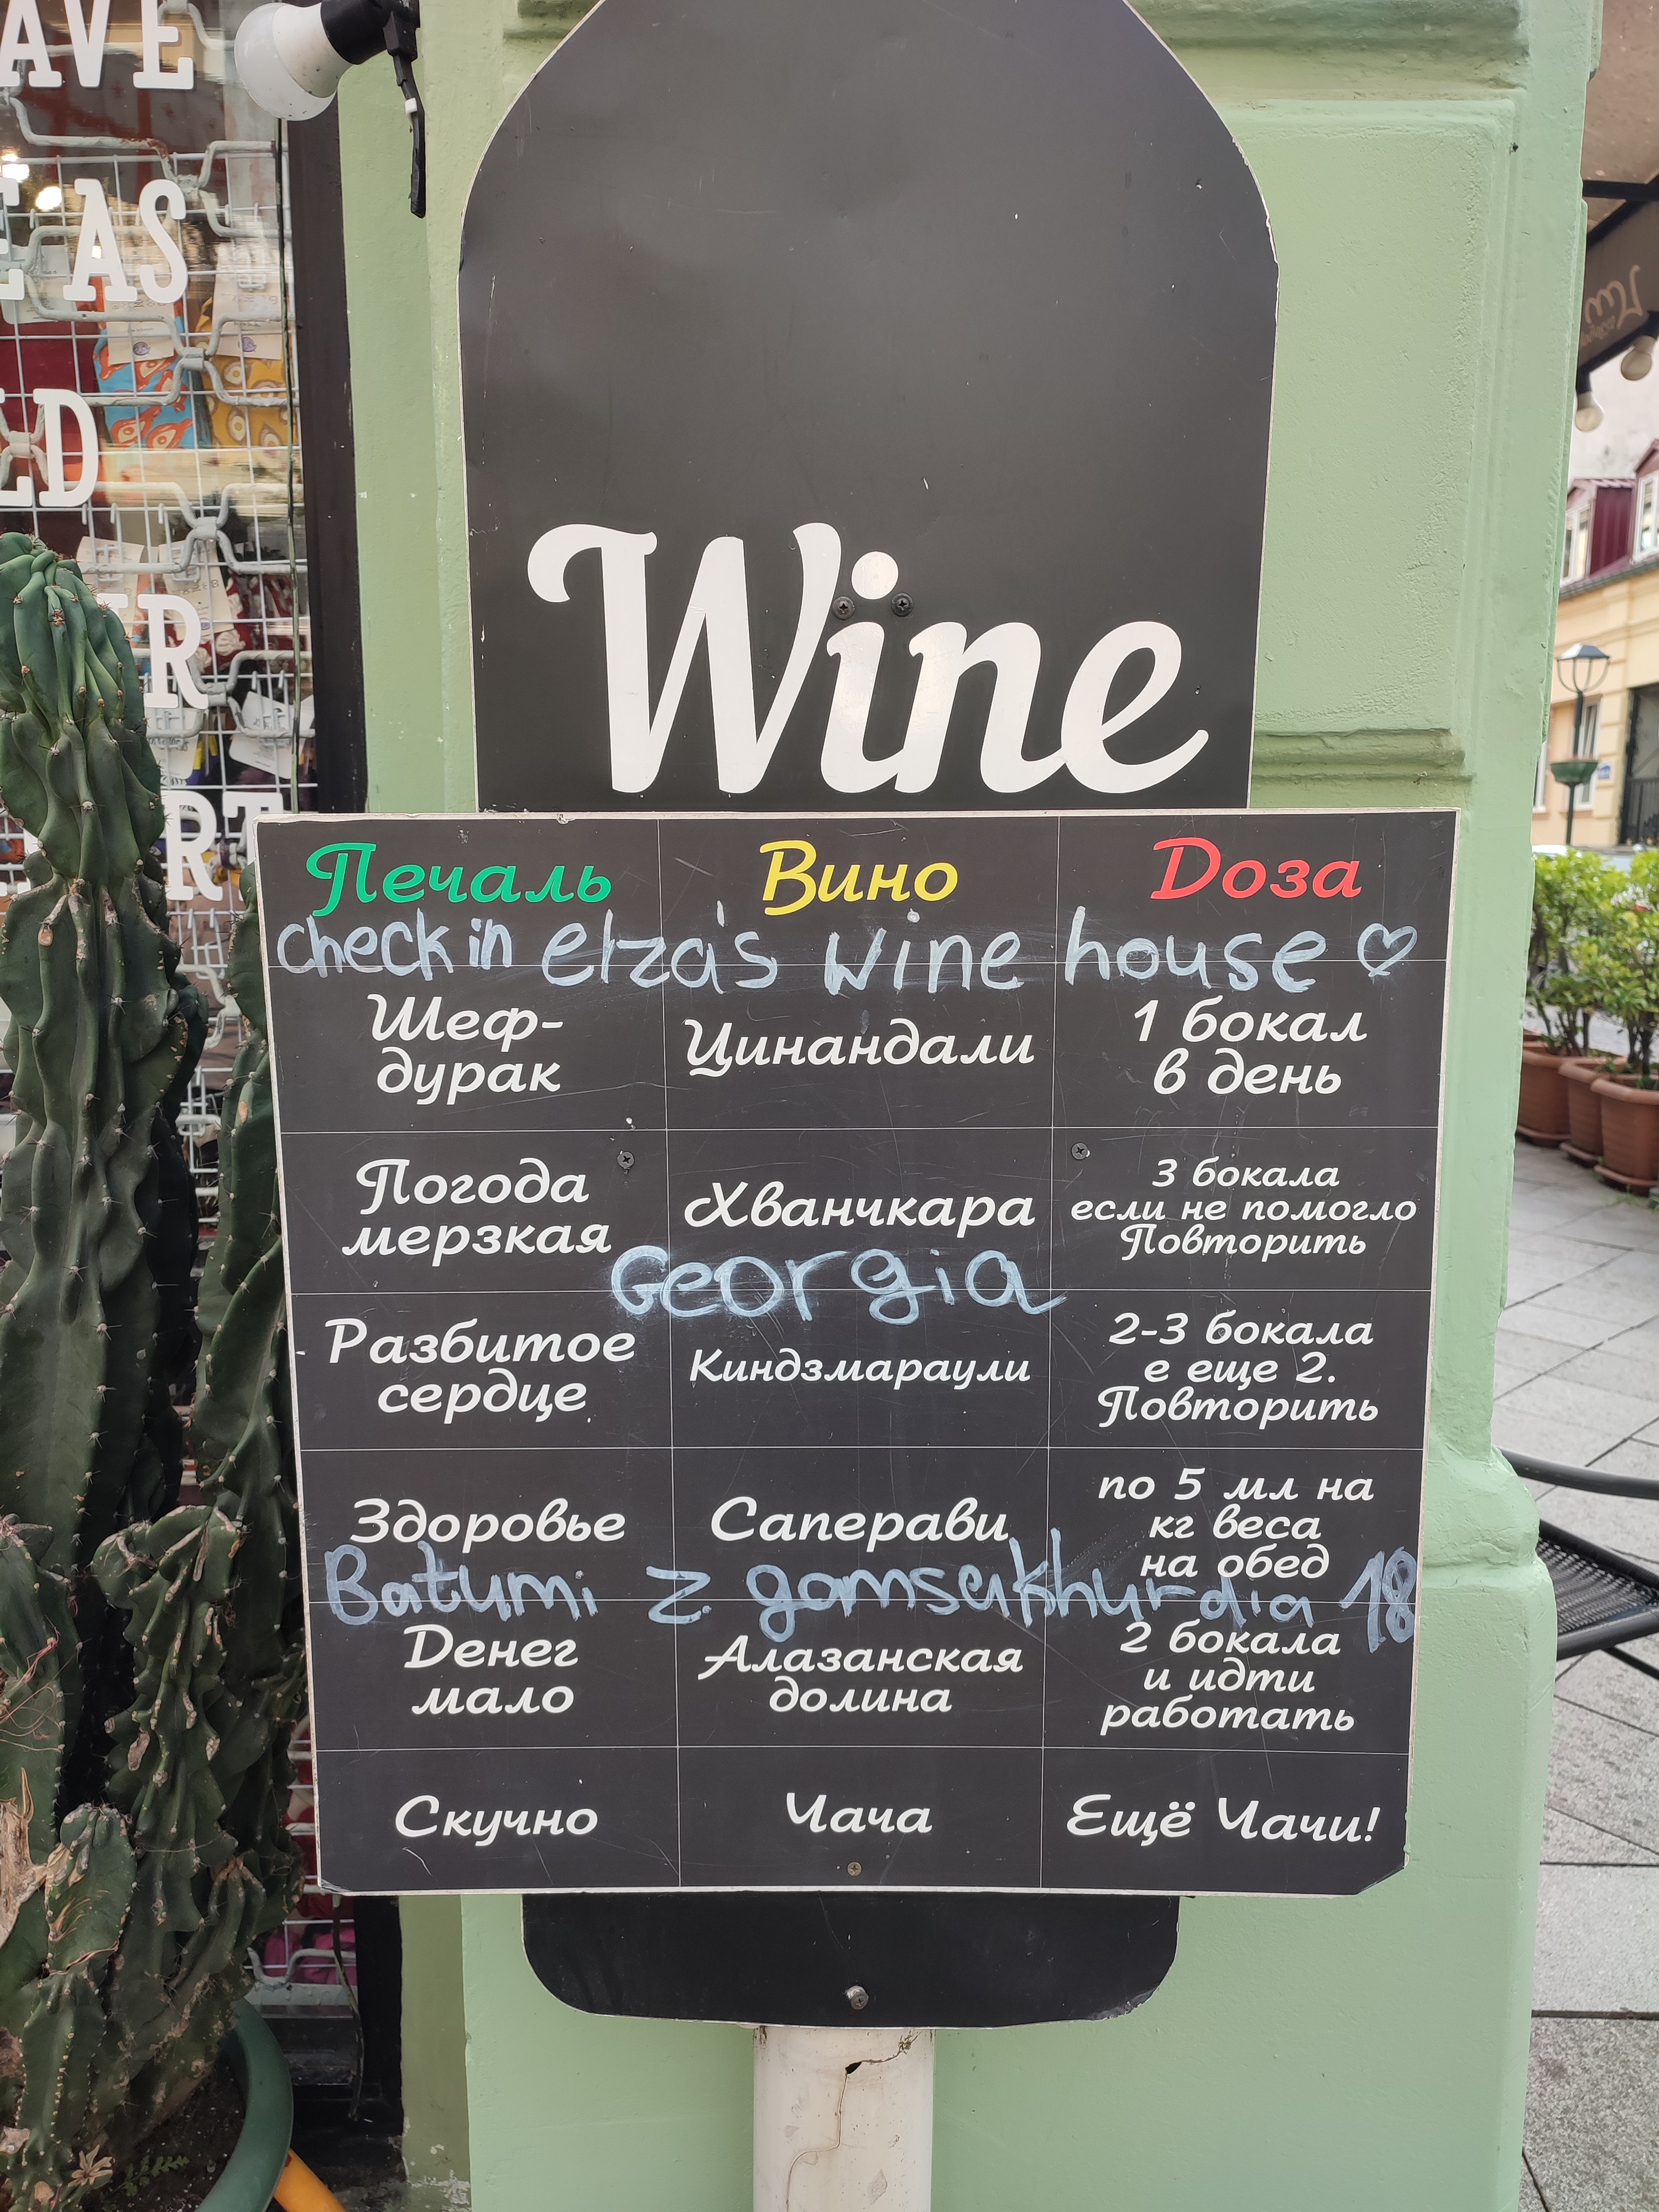 AVE
AS
LD
R
RT
Wine
Печаль Вино Доза
check in elza's wine house ♡
Шеф-
дурак
Цинандали
1 бокал
в день
Погода
мерзкая
Хванчкара
3 бокала
если не помогло
Повторить
Georgia
Разбитое
сердце
Киндзмараули
2-3 бокала
е еще 2.
Повторить
Здоровье
Саперави
по 5 мл на
кг веса
на обед
Batumi z. gamsakhurdia 18
Денег
мало
Алазанская
долина
2 бокала
и идти
работать
Скучно
Чача
Ещё Чачи!